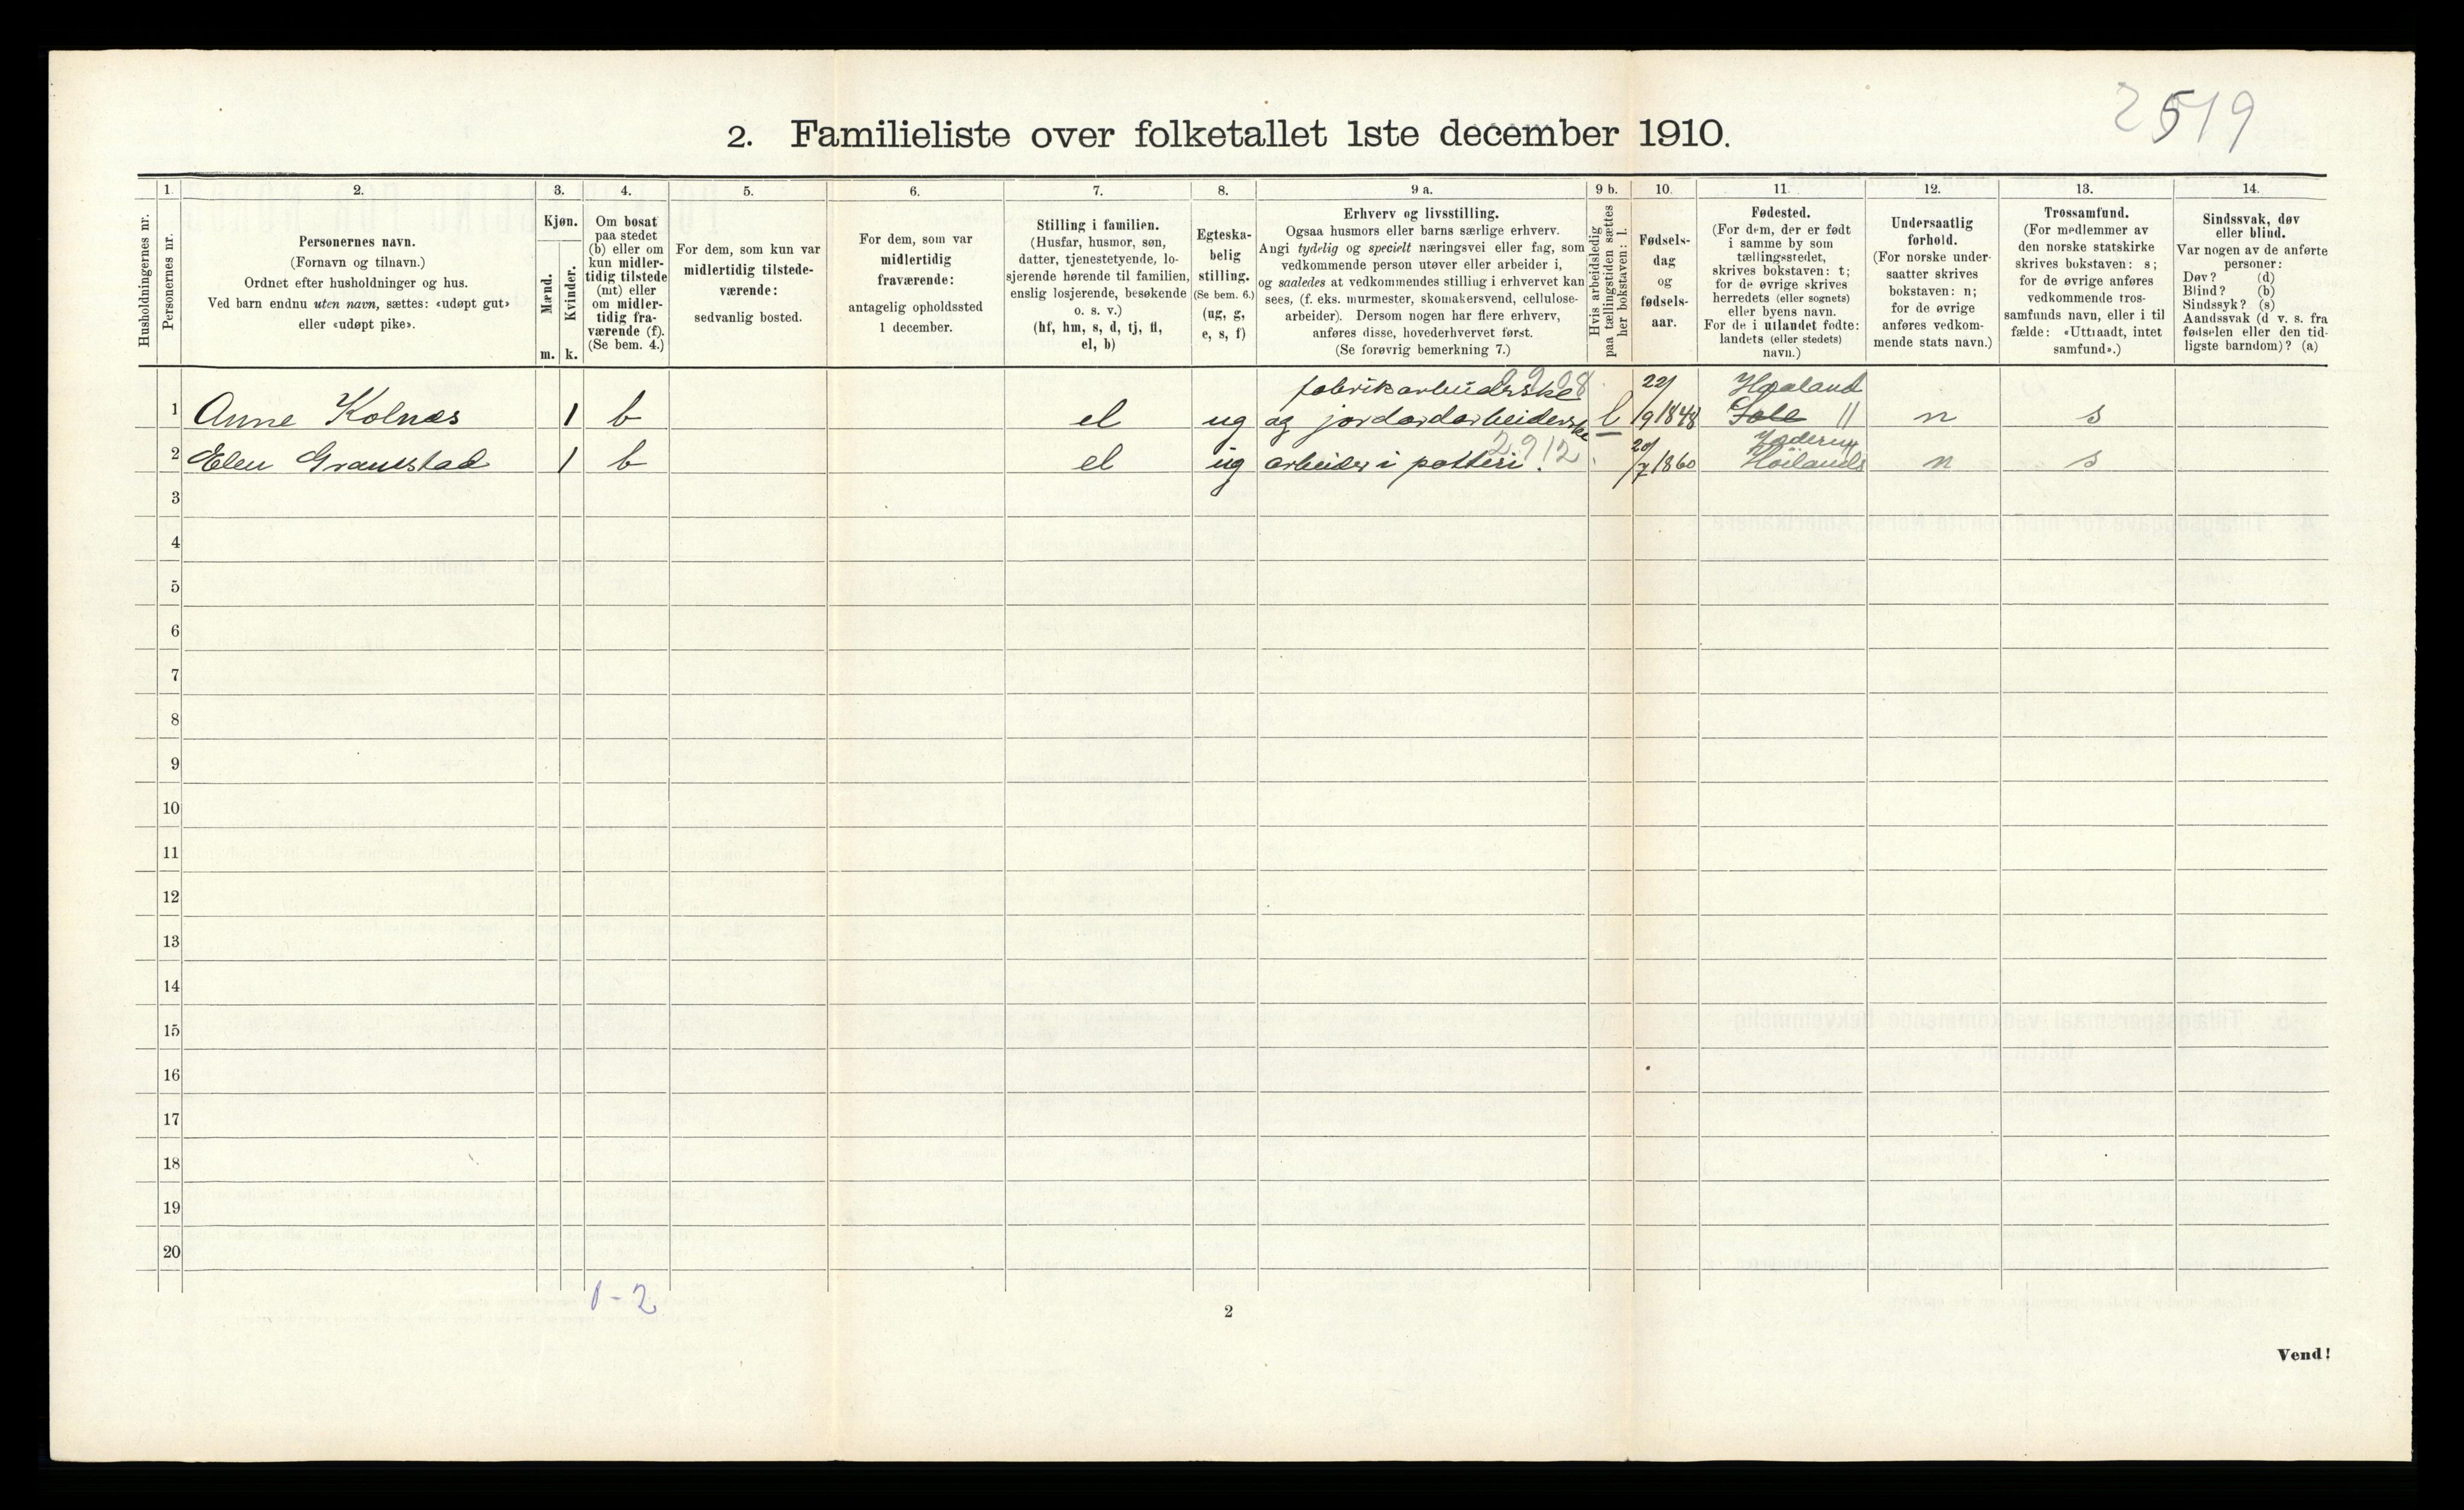 2519
2. Familieliste over folketallet 1ste december 1910.
1. 2. 3. 4. 5. 6. 7. 8. 9 a. 9 b. 10. 11. 12. 13. 14.
Husholdningernes nr.
Personernes nr.
Personernes navn.
(Fornavn og tilnavn.)
Ordnet efter husholdninger og hus.
Ved barn endnu uten navn, sættes: «udøpt gut»
eller «udøpt pike».
Kjøn.
Mænd.
Kvinder.
m. k.
Om bosat
paa stedet
(b) eller om
kun midler-
tidig tilstede
(mt) eller
om midler-
tidig fra-
værende (f).
(Se bem. 4.)
For dem, som kun var
midlertidig tilstede-
værende:
sedvanlig bosted.
For dem, som var
midlertidig
fraværende:
antagelig opholdssted
1 december.
Stilling i familien.
(Husfar, husmor, søn,
datter, tjenestetyende, lo-
sjerende hørende til familien,
enslig losjerende, besøkende
o. s. v.)
(hf, hm, s, d, tj, fl,
el, b)
Egteska-
belig
stilling.
(Se bem. 6.)
(ug, g,
e, s, f)
Erhverv og livsstilling.
Ogsaa husmors eller barns særlige erhverv.
Angi tydelig og specielt næringsvei eller fag, som
vedkommende person utøver eller arbeider i,
og saaledes at vedkommendes stilling i erhvervet kan
sees, (f. eks. murmester, skomakersvend, cellulose-
arbeider). Dersom nogen har flere erhverv,
anføres disse, hovederhvervet først.
(Se forøvrig bemerkning 7.)
Hvis arbeidsledig
paa tællingstiden sættes
her bokstaven: l.
Fødsels-
dag
og
fødsels-
aar.
Fødested.
(For dem, der er født
i samme by som
tællingsstedet,
skrives bokstaven: t;
for de øvrige skrives
herredets (eller sognets)
eller byens navn.
For de i utlandet fødte:
landets (eller stedets)
navn.)
Undersaatlig
forhold.
(For norske under-
saatter skrives
bokstaven: n;
for de øvrige
anføres vedkom-
mende stats navn.)
Trossamfund.
(For medlemmer av
den norske statskirke
skrives bokstaven: s;
for de øvrige anføres
vedkommende tros-
samfunds navn, eller i til
fælde: «Uttraadt, intet
samfund».)
Sindssvak, døv
eller blind.
Var nogen av de anførte
personer:
Døv? (d)
Blind? (b)
Sindssyk? (s)
Aandssvak (d v. s. fra
fødselen eller den tid-
ligste barndom)? (a)
fabrikarbeiderske 22/ Haaland
1 Anne Kolnæs 1 b el ug og jordardarbeiderske l /9 1848 Sole || n s
2912 20/ Jæderen
2 Elen Gramstad 1 b el ug arbeider i potteri. /7 1860 Höilands n s
3
4
5
6
7
8
9
10
11
12
13
14
15
16
17
18
19
20
1-2
2
Vend!